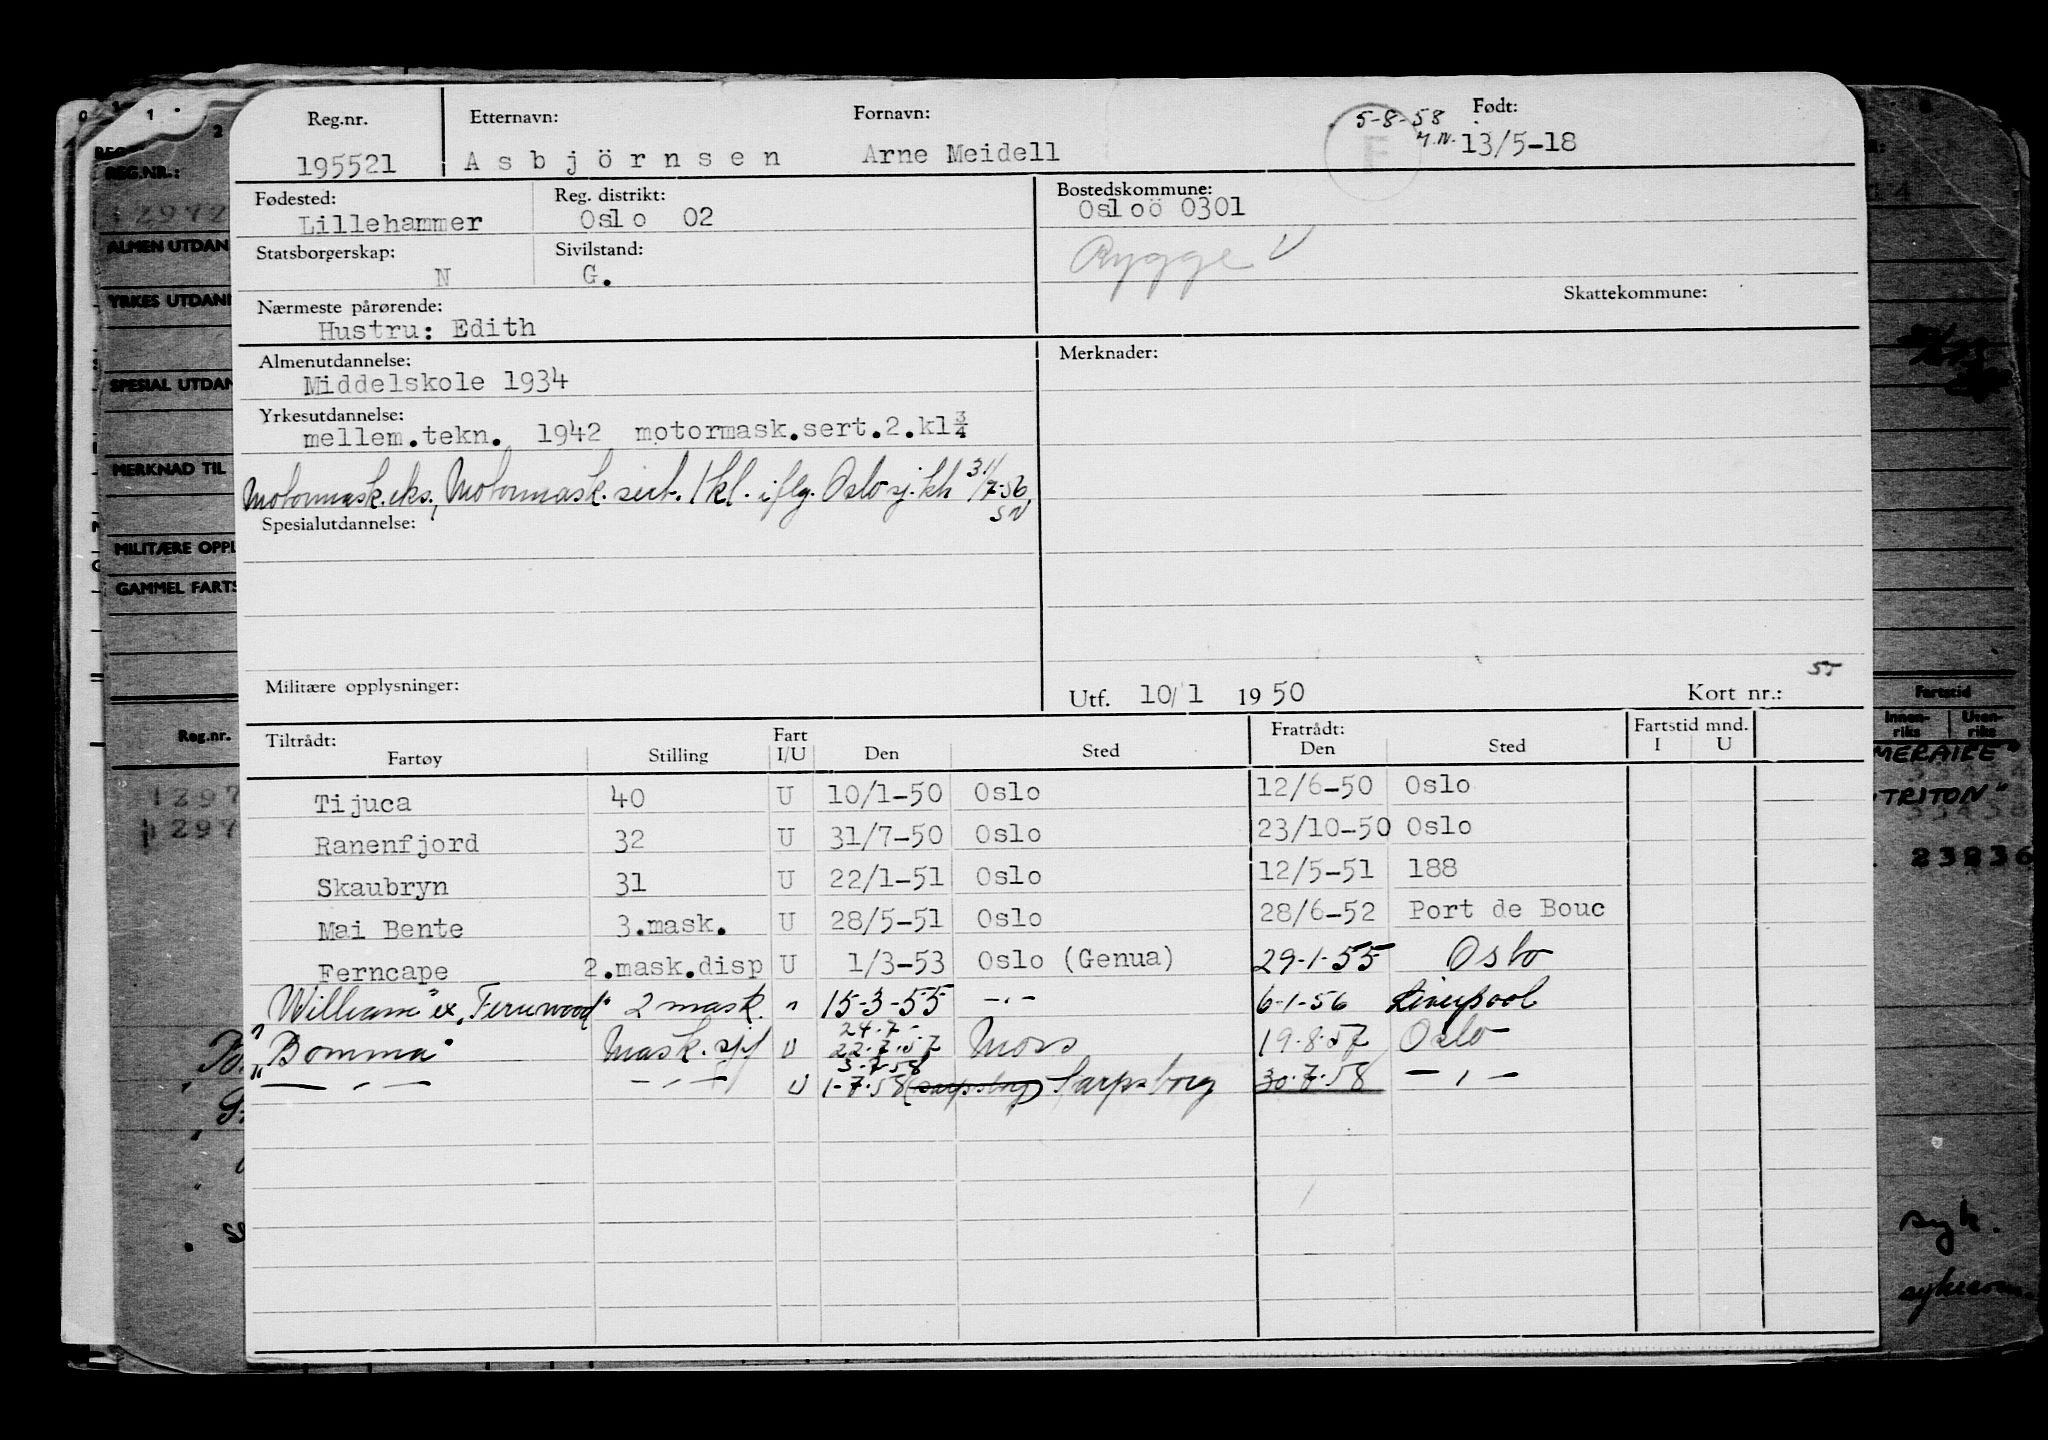 Reg.nr. Etternavn: Fornavn: 5-8-58 Født:
195521 Asbjörnsen Arne Meidell 13/5-18
Fødested: Reg. distrikt: Bostedskommune:
Lillehammer Oslo 02 Osloö 0301
Statsborgerskap: Sivilstand: Rygge
N G.
Nærmeste pårørende: Skattekommune:
Hustru: Edith
Almenutdannelse: Merknader:
Middelskole 1934
Yrkesutdannelse:
mellem.tekn. 1942 motormask.sert.2.kl 3/4
Motormask.eks., Motormask. sert. 1 kl. iflg. Oslo sj.kh 31/7-56
SN
Spesialutdannelse:
55
Militære opplysninger: Utf. 10/1 1950 Kort nr.:
Tiltrådt: Fart Fratrådt: Fartstid mnd.
Fartøy Stilling I/U Den Sted Den Sted I U
Tijuca 40 U 10/1-50 Oslo 12/6-50 Oslo
Ranenfjord 32 U 31/7-50 Oslo 23/10-50 Oslo
Skaubryn 31 U 22/1-51 Oslo 12/5-51 188
Mai Bente 3.mask. U 28/5-51 Oslo 28/6-52 Port de Bouc
Ferncape 2.mask.disp U 1/3-53 Oslo (Genua) 29-1-55 Oslo
"William" ex "Fernwood" 2 mask. " 15-3-55 -"- 6-1-56 Liverpool
24.7-
"Bomma" Mask.sjf U 22.7.57 Moss 19.8.57 Oslo
3.7.58
-"- -"- U 1-7-58 (Sarpsborg) Sarpsborg 30.7.58 -"-
REG.NR.:
ALMEN UTDAN
YRKES UTDAN
SPESIAL UTDAN
MERKNAD TIL
MILITÆRE OPPL
GAMMEL FARTS
Reg.nr.
Fartstid
Innen-riks Uten-riks
MERAILE"
"TRITON"
23236
syk.